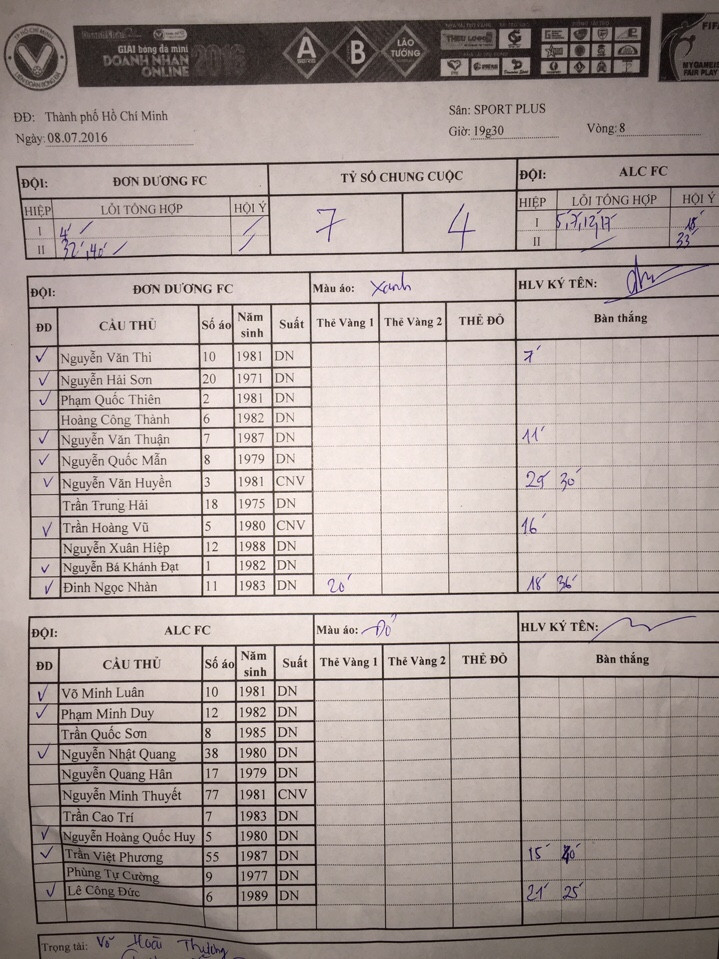 GIẢI bóng đá mini
DOANH NHÂN
ONLINE 2016
A B LÝ TƯỞNG
FIFA
MY GAME IS
FAIR PLAY
ĐĐ: Thành phố Hồ Chí Minh Sân: SPORT PLUS
Ngày: 08.07.2016 Giờ: 19g30 Vòng: 8
ĐỘI: ĐƠN DƯƠNG FC TỶ SỐ CHUNG CUỘC ĐỘI: ALC FC
HIỆP LỖI TỔNG HỢP HỘI Ý 7 4 HIỆP LỖI TỔNG HỢP HỘI Ý
I 4' I 5,7,12,17' 18'
II 32', 40' II 33'
ĐỘI: ĐƠN DƯƠNG FC Màu áo: Xanh HLV KÝ TÊN:
ĐD CẦU THỦ Số áo Năm sinh Suất Thẻ Vàng 1 Thẻ Vàng 2 THẺ ĐỎ Bàn thắng
✓ Nguyễn Văn Thi 10 1981 DN 7'
✓ Nguyễn Hải Sơn 20 1971 DN
✓ Phạm Quốc Thiên 2 1981 DN
Hoàng Công Thành 6 1982 DN
✓ Nguyễn Văn Thuận 7 1987 DN 11'
✓ Nguyễn Quốc Mẫn 8 1979 DN
✓ Nguyễn Văn Huyền 3 1981 CNV 29' 30'
Trần Trung Hải 18 1975 DN
✓ Trần Hoàng Vũ 5 1980 CNV 16'
Nguyễn Xuân Hiệp 12 1988 DN
✓ Nguyễn Bá Khánh Đạt 1 1982 DN
✓ Đinh Ngọc Nhàn 11 1983 DN 20' 18' 36'
ĐỘI: ALC FC Màu áo: Đỏ HLV KÝ TÊN:
ĐD CẦU THỦ Số áo Năm sinh Suất Thẻ Vàng 1 Thẻ Vàng 2 THẺ ĐỎ Bàn thắng
✓ Võ Minh Luân 10 1981 DN
✓ Phạm Minh Duy 12 1982 DN
Trần Quốc Sơn 8 1985 DN
✓ Nguyễn Nhật Quang 38 1980 DN
Nguyễn Quang Hân 17 1979 DN
Nguyễn Minh Thuyết 77 1981 CNV
Trần Cao Trí 7 1983 DN
✓ Nguyễn Hoàng Quốc Huy 5 1980 DN
✓ Trần Việt Phương 55 1987 DN 15' 40'
Phùng Tự Cường 9 1977 DN
✓ Lê Công Đức 6 1989 DN 21' 25'
Trọng tài: Võ Hoài Thương